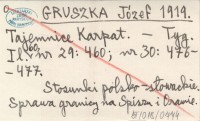 GRUSZKA Józef 1919.
Tajemnice Karpat. — Tyg.
Il. 60, nr 29: 460; nr 30: 476-
-477.
Stosunki polsko-słowackie.
Sprawa granicy na Spiszu i Orawie.